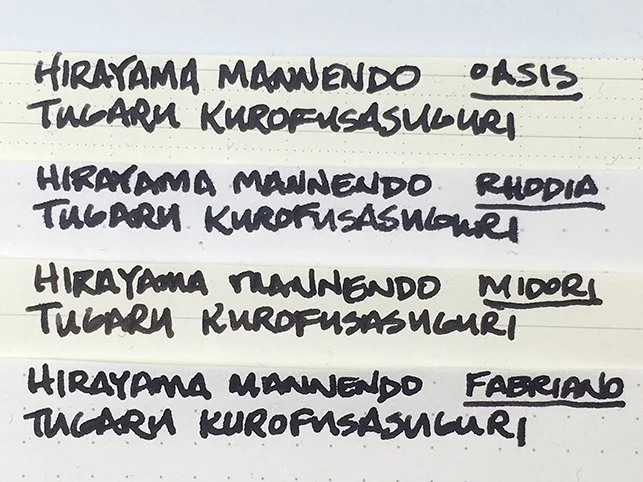 HIRAYAMA MANNENDO OASIS
TUGARU KUROFUSASUGURI
HIRAYAMA MANNENDO RHODIA
TUGARU KUROFUSASUGURI
HIRAYAMA MANNENDO MIDORI
TUGARU KUROFUSASUGURI
HIRAYAMA MANNENDO FABRIANO
TUGARU KUROFUSASUGURI